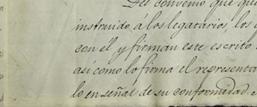 Del convenio que
instruido á los legatarios, los
con él y firman este escrito
así como lo firma el representa
lo en señal de su conformidad.